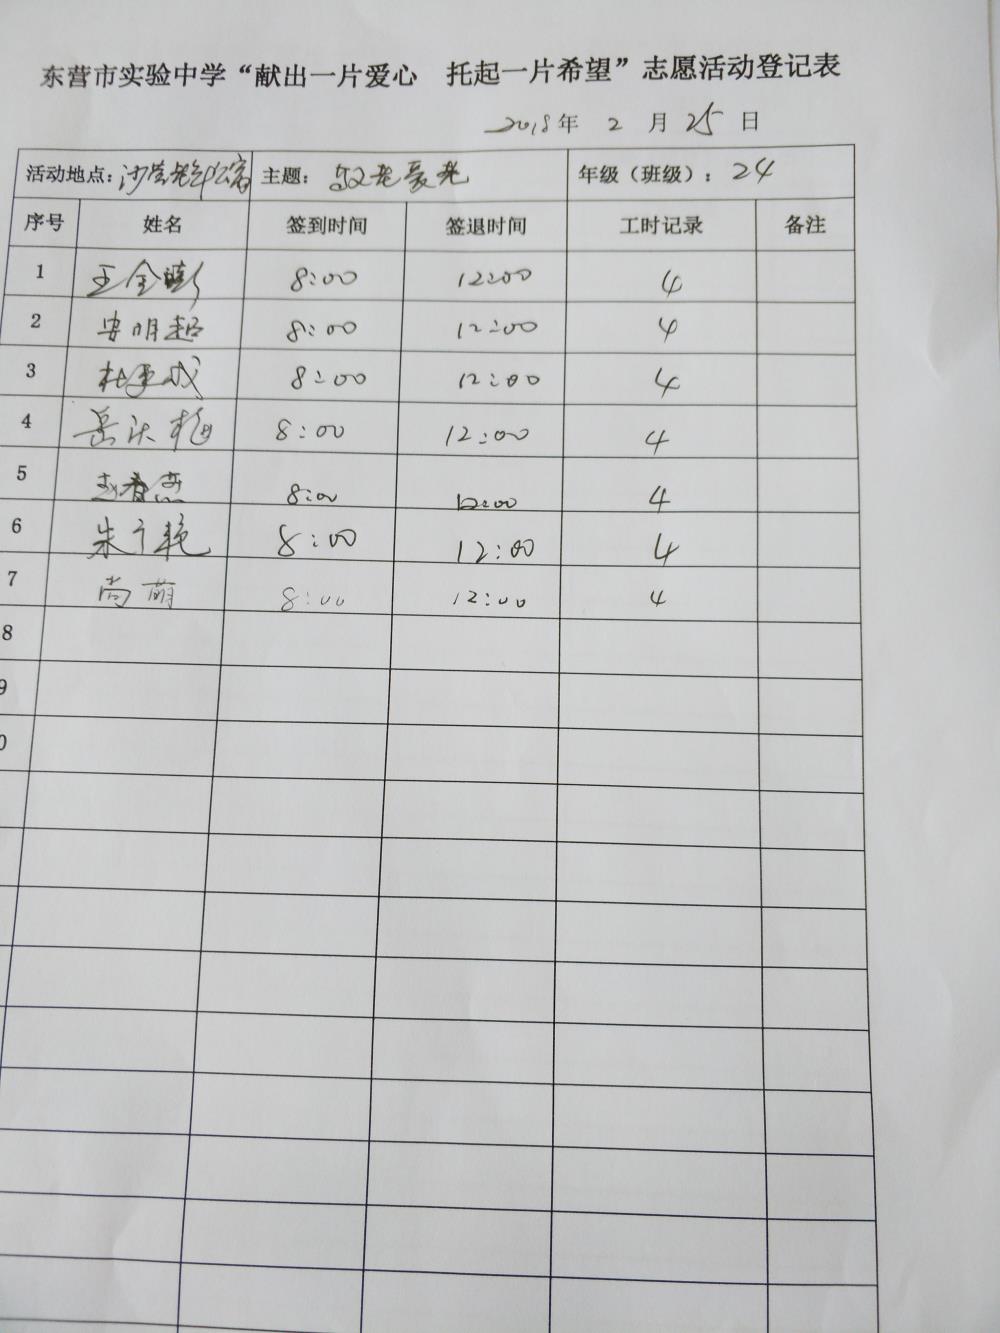 东营市实验中学“献出一片爱心 托起一片希望”志愿活动登记表
2018年 2 月 25 日
活动地点: 主题: 敬老爱老 年级（班级）: 24
序号 姓名 签到时间 签退时间 工时记录 备注
1 王全 8:00 12:00 4
2 安明超 8:00 12:00 4
3 杜 成 8:00 12:00 4
4 岳 梅 8:00 12:00 4
5 赵春燕 8:00 12:00 4
6 朱 艳 8:00 12:00 4
7 尚萌 8:00 12:00 4
8
9
0